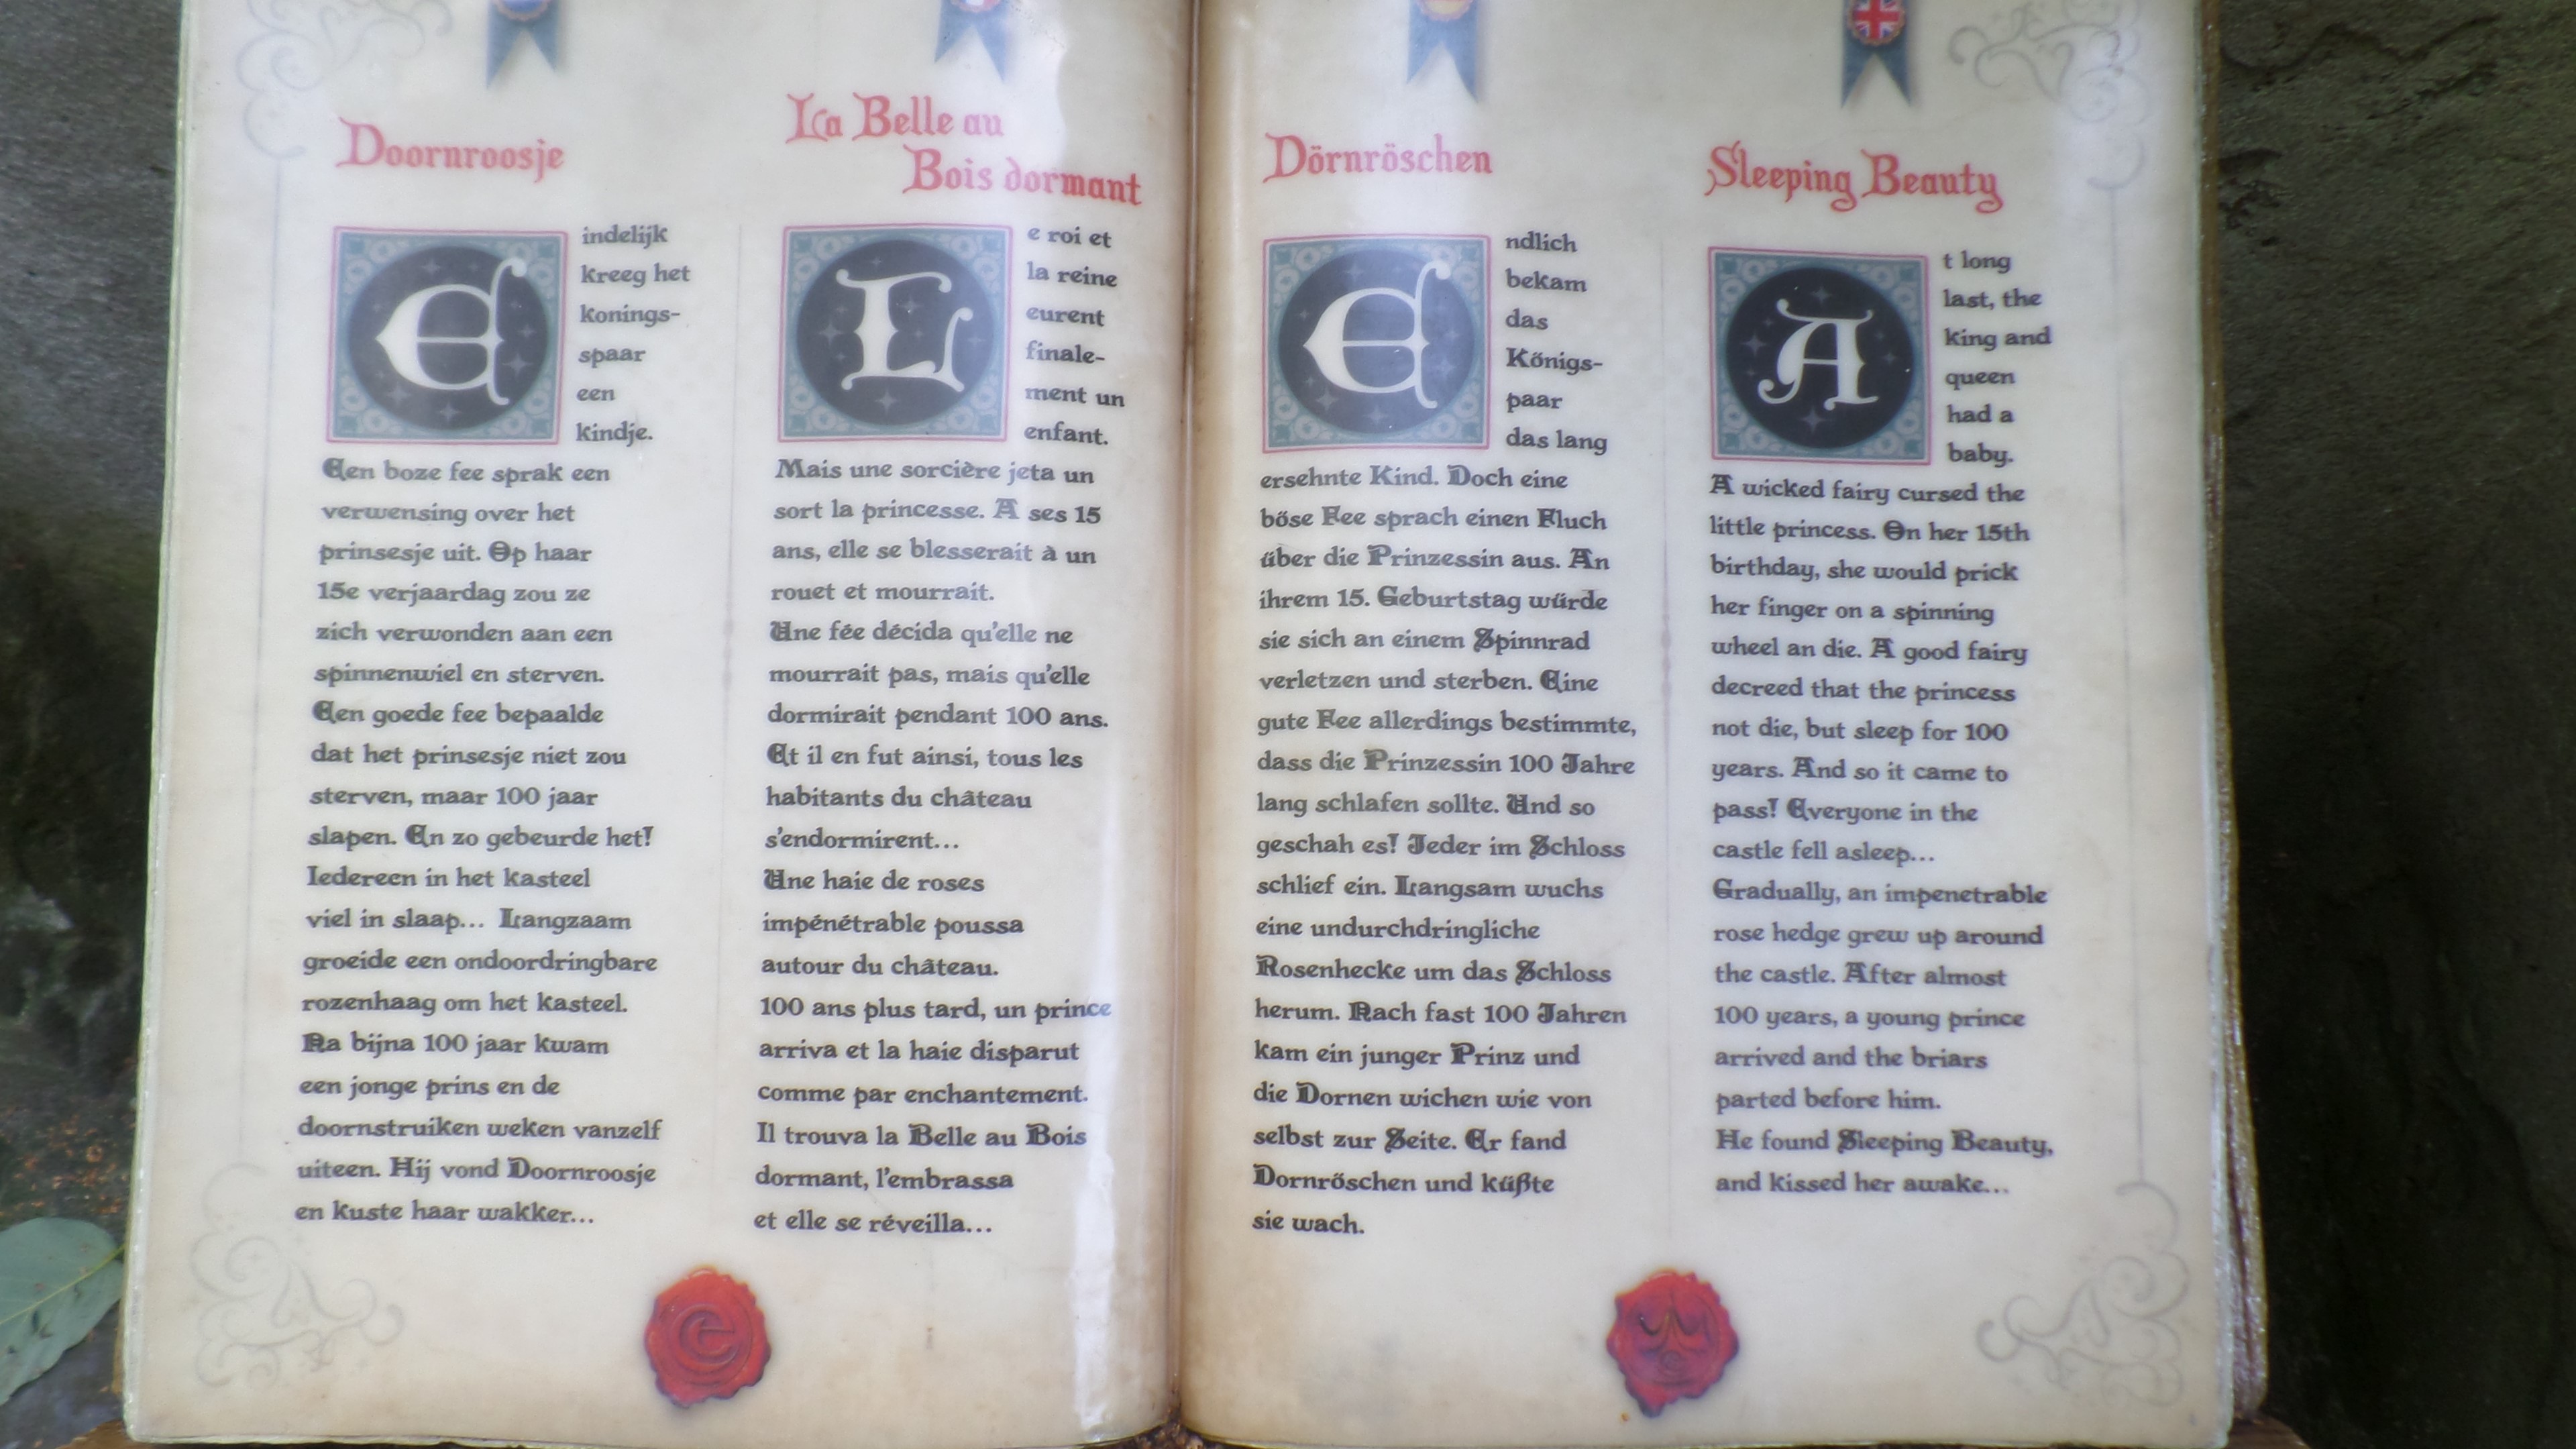 Doornroosje
Eindelijk
kreeg het
konings-
spaar
een
kindje.
Een boze fee sprak een
verwensing over het
prinsesje uit. Op haar
15e verjaardag zou ze
zich verwonden aan een
spinnenwiel en sterven.
Een goede fee bepaalde
dat het prinsesje niet zou
sterven, maar 100 jaar
slapen. En zo gebeurde het!
Iedereen in het kasteel
viel in slaap... Langzaam
groeide een ondoordringbare
rozenhaag om het kasteel.
Na bijna 100 jaar kwam
een jonge prins en de
doornstruiken weken vanzelf
uiteen. Hij vond Doornroosje
en kuste haar wakker...
La Belle au
Bois dormant
Le roi et
la reine
eurent
finale-
ment un
enfant.
Mais une sorcière jeta un
sort la princesse. A ses 15
ans, elle se blesserait à un
rouet et mourrait.
Une fée décida qu'elle ne
mourrait pas, mais qu'elle
dormirait pendant 100 ans.
Et il en fut ainsi, tous les
habitants du château
s'endormirent...
Une haie de roses
impénétrable poussa
autour du château.
100 ans plus tard, un prince
arriva et la haie disparut
comme par enchantement.
Il trouva la Belle au Bois
dormant, l'embrassa
et elle se réveilla...
Dörnröschen
Endlich
bekam
das
Königs-
paar
das lang
ersehnte Kind. Doch eine
böse Fee sprach einen Fluch
über die Prinzessin aus. An
ihrem 15. Geburtstag würde
sie sich an einem Spinnrad
verletzen und sterben. Eine
gute Fee allerdings bestimmte,
dass die Prinzessin 100 Jahre
lang schlafen sollte. Und so
geschah es! Jeder im Schloss
schlief ein. Langsam wuchs
eine undurchdringliche
Rosenhecke um das Schloss
herum. Nach fast 100 Jahren
kam ein junger Prinz und
die Dornen wichen wie von
selbst zur Seite. Er fand
Dornröschen und küßte
sie wach.
Sleeping Beauty
At long
last, the
king and
queen
had a
baby.
A wicked fairy cursed the
little princess. On her 15th
birthday, she would prick
her finger on a spinning
wheel an die. A good fairy
decreed that the princess
not die, but sleep for 100
years. And so it came to
pass! Everyone in the
castle fell asleep...
Gradually, an impenetrable
rose hedge grew up around
the castle. After almost
100 years, a young prince
arrived and the briars
parted before him.
He found Sleeping Beauty,
and kissed her awake...